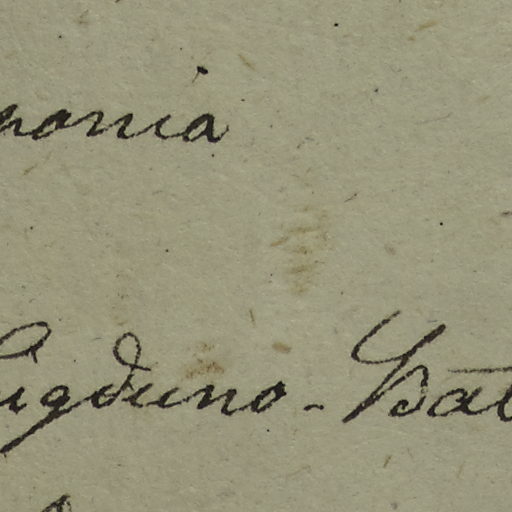 nania
Lugduno-Bat